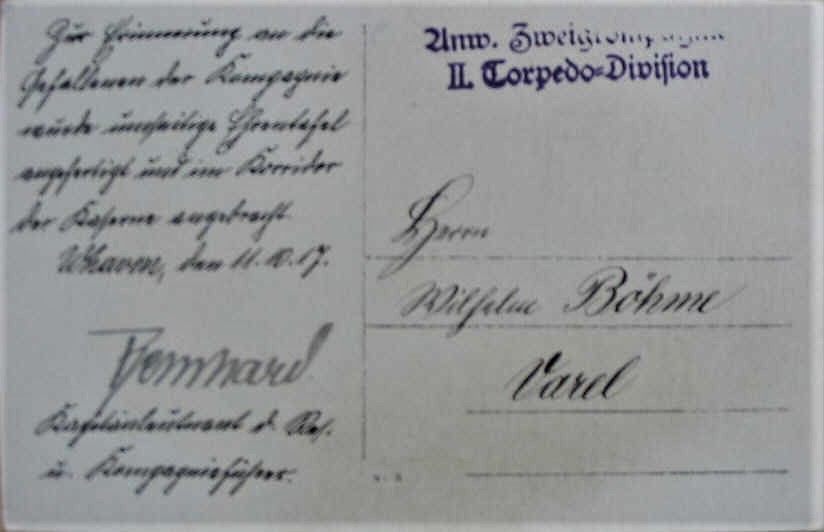 Zur Erinnerung an die
Gefallenen der Kompagnie
wurde umseitige Ehrentafel
angefertigt und im Korridor
der Kaserne angebracht.
W'haven, den 11.10.17.
Kapitänleutnant d. Res.
u. Kompagnieführer.
Anw. Zweigkompagnie
II. Torpedo=Division
Herrn
Wilhelm Böhme
Varel